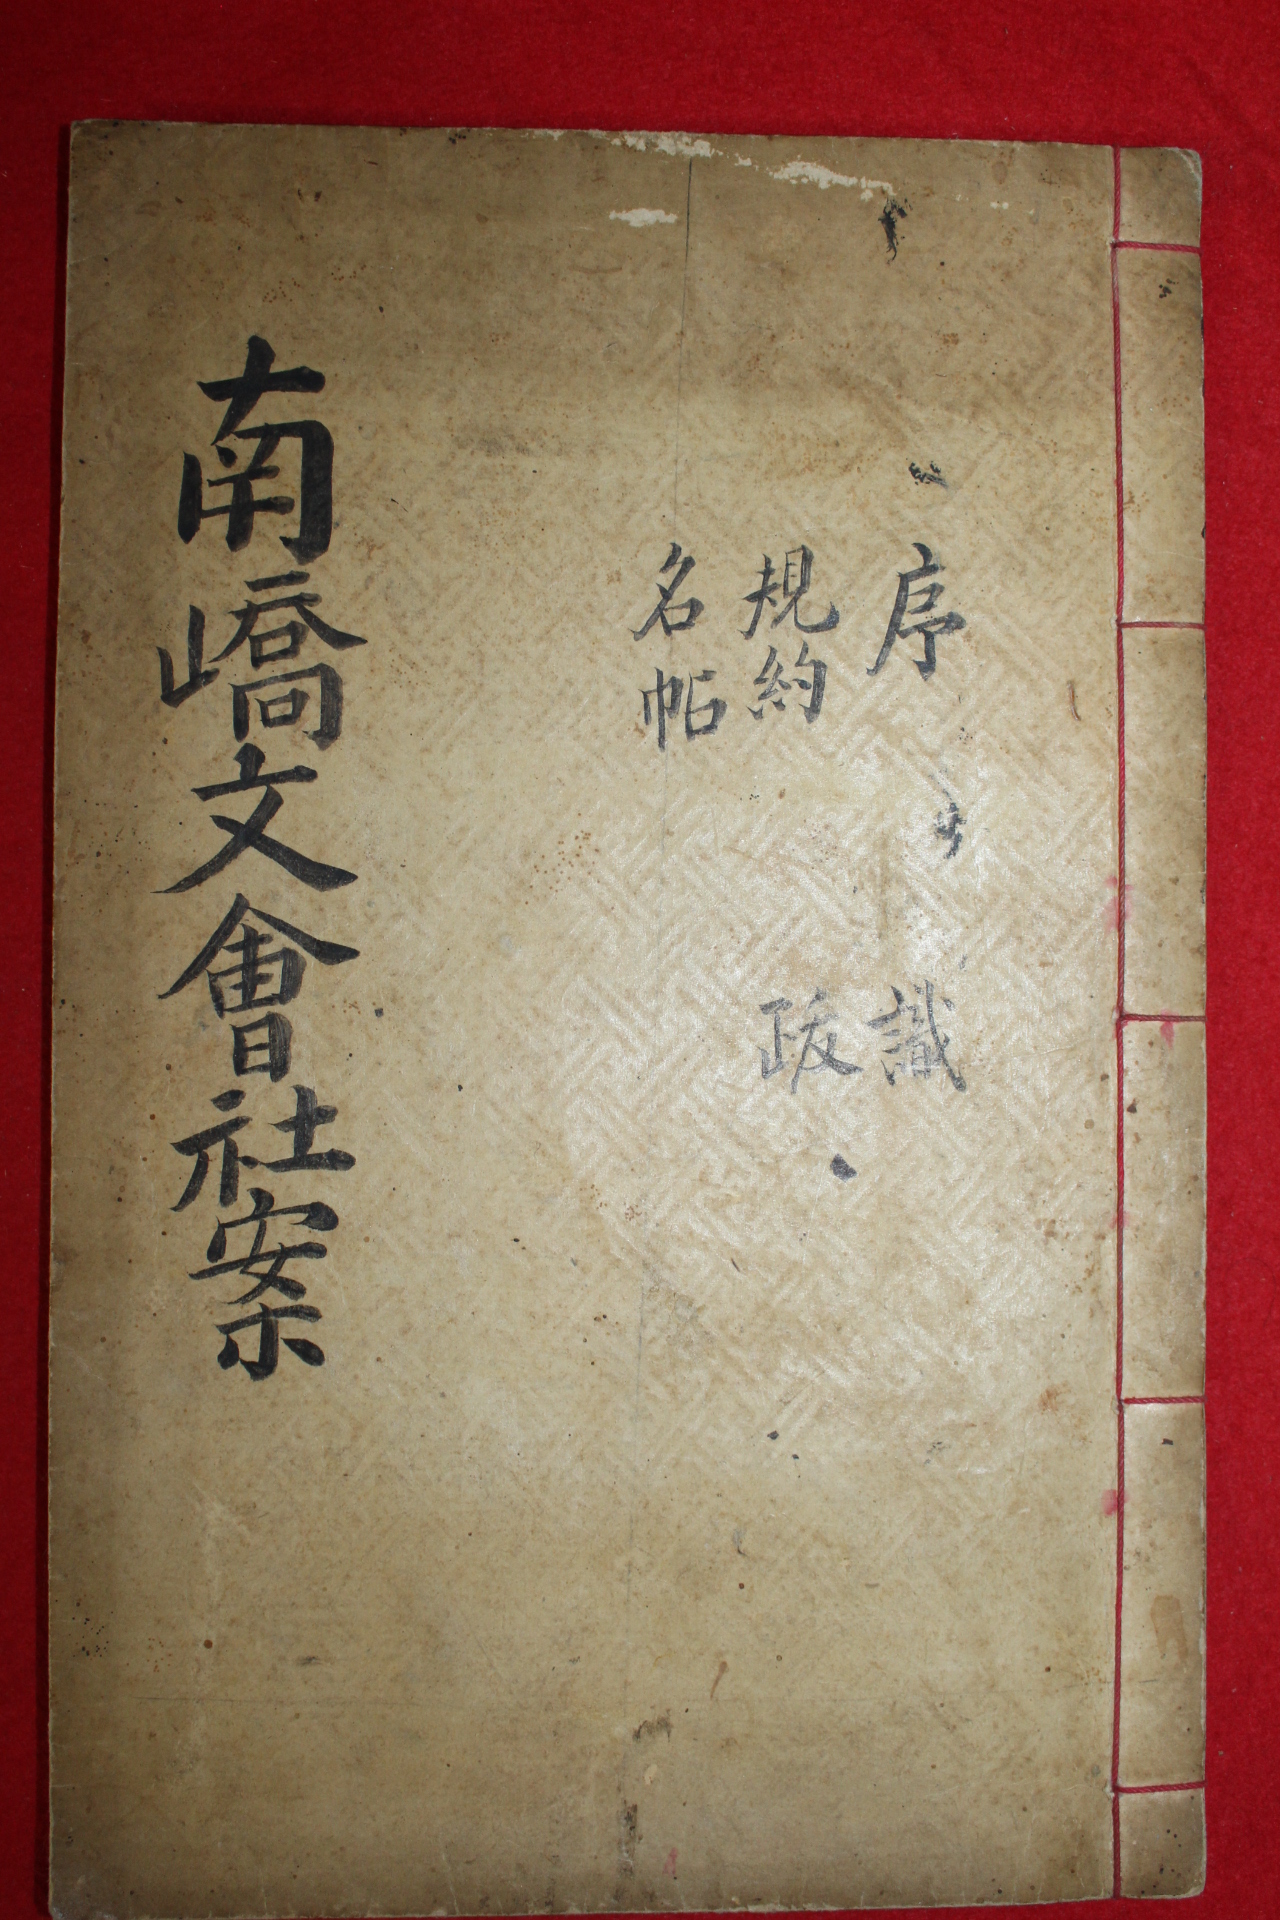 序
規約
名帖
識
跋
南嶠文會社案